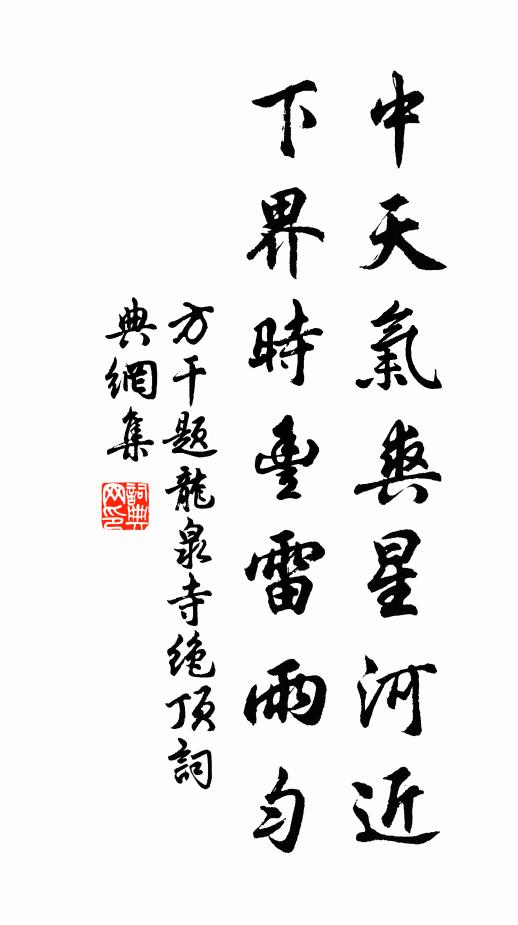 中天氣爽星河近
下界時豐雷雨勻
方干題龍泉寺絶頂詞
典網集
詞典網印